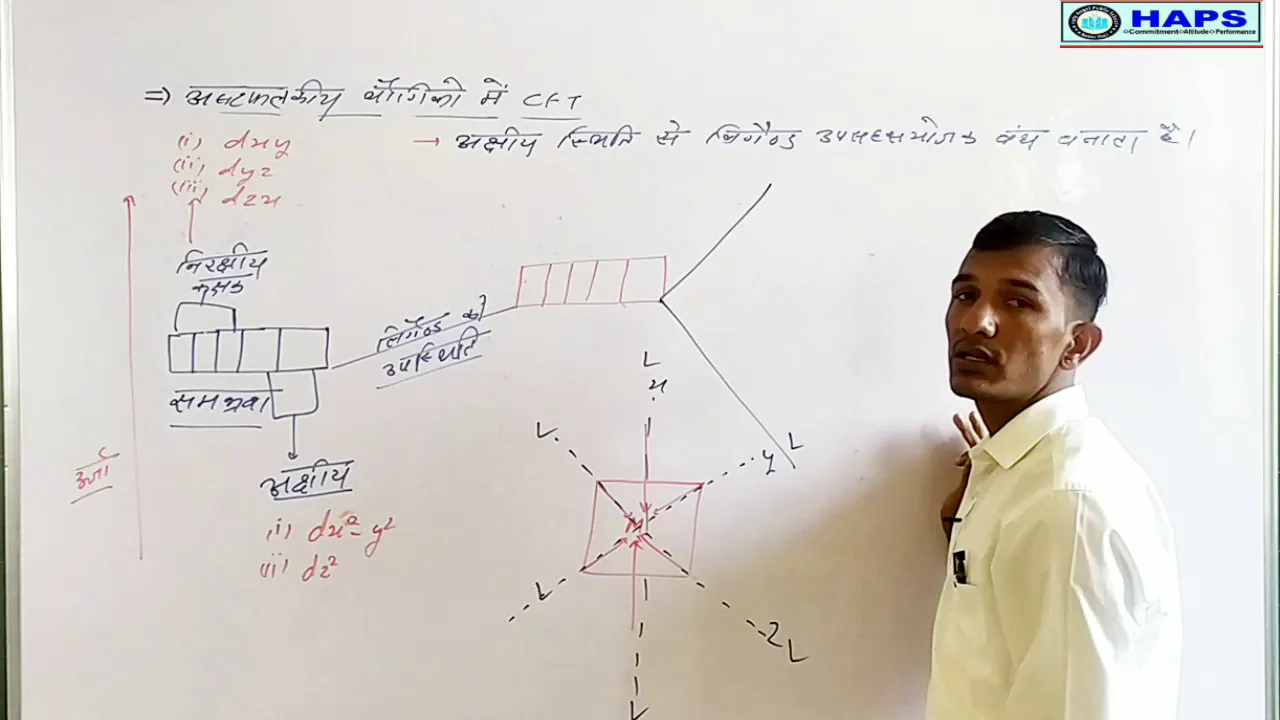 HAPS
Commitment Attitude Performance
⇒ अष्टफलकीय यौगिकों में CFT
(i) dxy
(ii) dyz
(iii) dzx
→ अक्षीय स्थिति से लिगैण्ड उपसहसंयोजक बंध बनाता है।
निरक्षीय
कक्षक
लिगैण्ड की
उपस्थिति
समभ्रंश
अक्षीय
(i) dx²-y²
(ii) dz²
ऊर्जा
L
x
L
y L
M
L
Z L
L